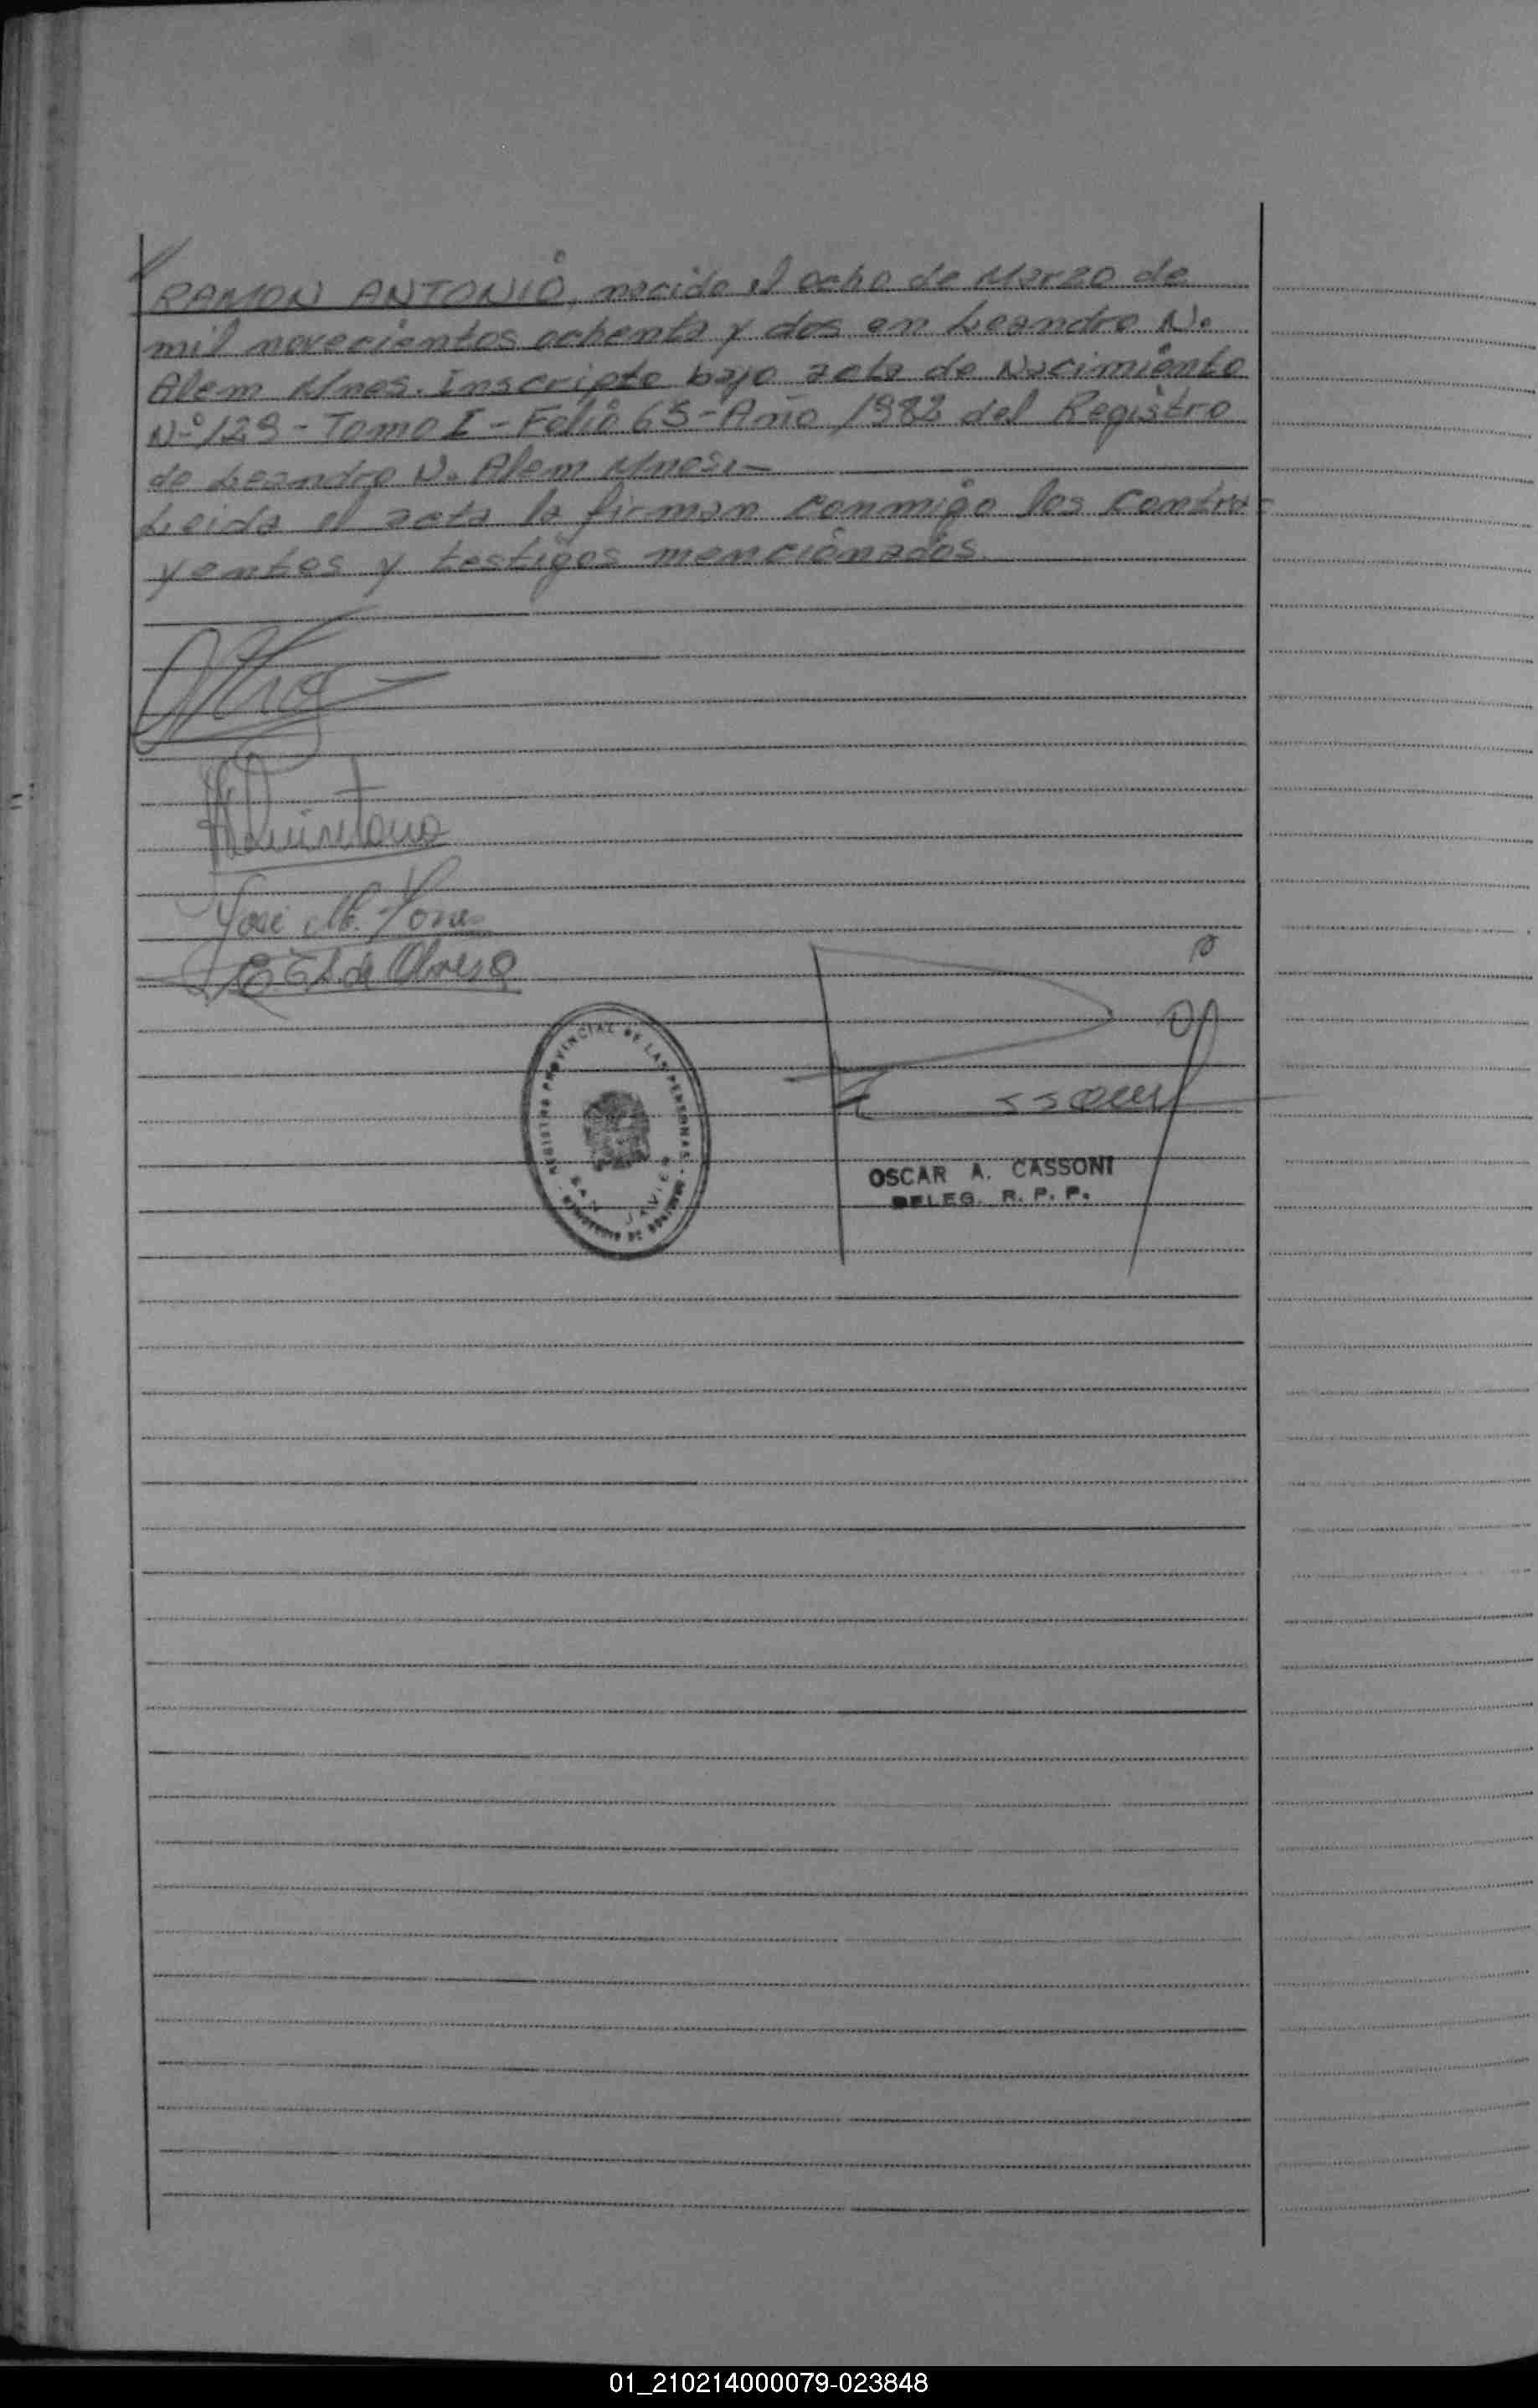 RAMON ANTONIO, nacido el ocho de Marzo de
mil novecientos ochenta y dos en Leandro N.
Alem Mnes. Inscripto bajo acta de Nacimiento
Nº 129 - Tomo I - Folio 65 - Año 1982 del Registro
de Leandro N. Alem Mnes.-
Leida el acta la firman conmigo los Contra-
yentes y testigos mencionados.
Quintana
José M.
de Olivera
REGISTRO PROVINCIAL DE LAS PERSONAS
SAN JAVIER
OSCAR A. CASSONI
DELEG. R. P. P.
01_210214000079-023848